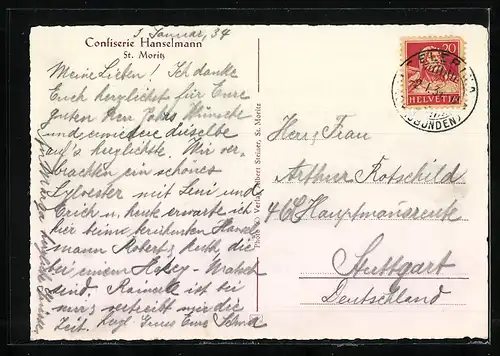 5 Januar, 34
Confiserie Hanselmann
St. Moritz
Meine Lieben! Ich danke
Euch herzlichst für Eure
guten Neu Jahrs Wünsche
und erwiedere dieselbe
auf's herzlichste. Wir ver-
brachten ein schönes
Sylvester mit Leni und
Erich u. heute erwarte ich
hier beim berühmten Hansel
mann Robert & Ruth die
bei einem Hokey-Match
sind. Rainerle ist bei
uns & vertreibt mir die
Zeit.
Photo & Verlag Albert Steiner, St. Moritz
20
HELVETIA
Herz Frau
Arthur Rotschild
46 Hauptmannsreute
Stuttgart
Deutschland